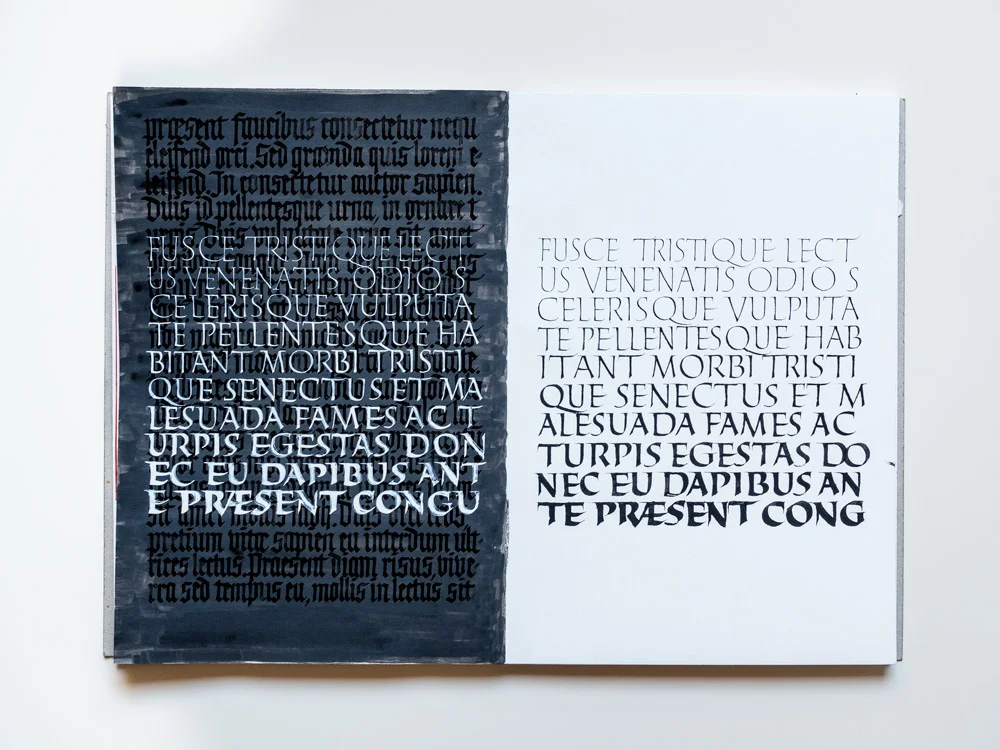 præsent faucibus consectetur nequ
eleifend orci. Sed gravida quis lorem e-
leifend. In consectetur auctor sapien.
Duis id pellentesque urna, in ornare t
FUSCE TRISTIQUE LECT
US VENENATIS ODIO S
CELERISQUE VULPUTA
TE PELLENTESQUE HA
BITANT MORBI TRISTI
QUE SENECTUS ET MA
LESUADA FAMES AC T
URPIS EGESTAS DON
EC EU DAPIBUS ANT
E PRÆSENT CONGU
pretium vitæ sapien eu interdum ult
rices lectus. Praesent digni risus, vive
rra sed tempus eu, mollis in lectus sit
FUSCE TRISTIQUE LECT
US VENENATIS ODIO S
CELERISQUE VULPUTA
TE PELLENTESQUE HAB
ITANT MORBI TRISTI
QUE SENECTUS ET M
ALESUADA FAMES AC
TURPIS EGESTAS DO
NEC EU DAPIBUS AN
TE PRÆSENT CONG